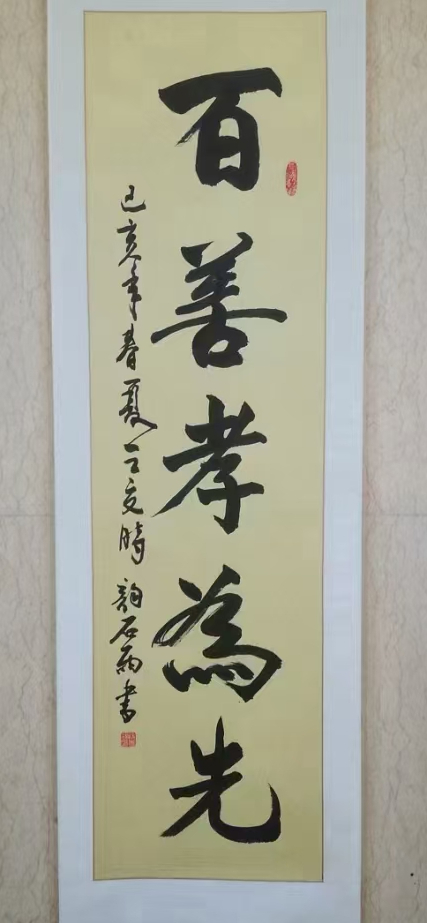 百善孝為先
己亥年春夏之交時韵石雨書